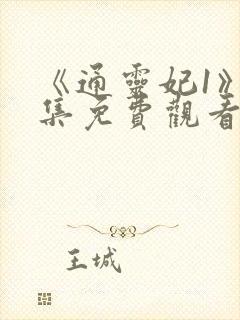 《通靈妃1》
集免費觀看
王城